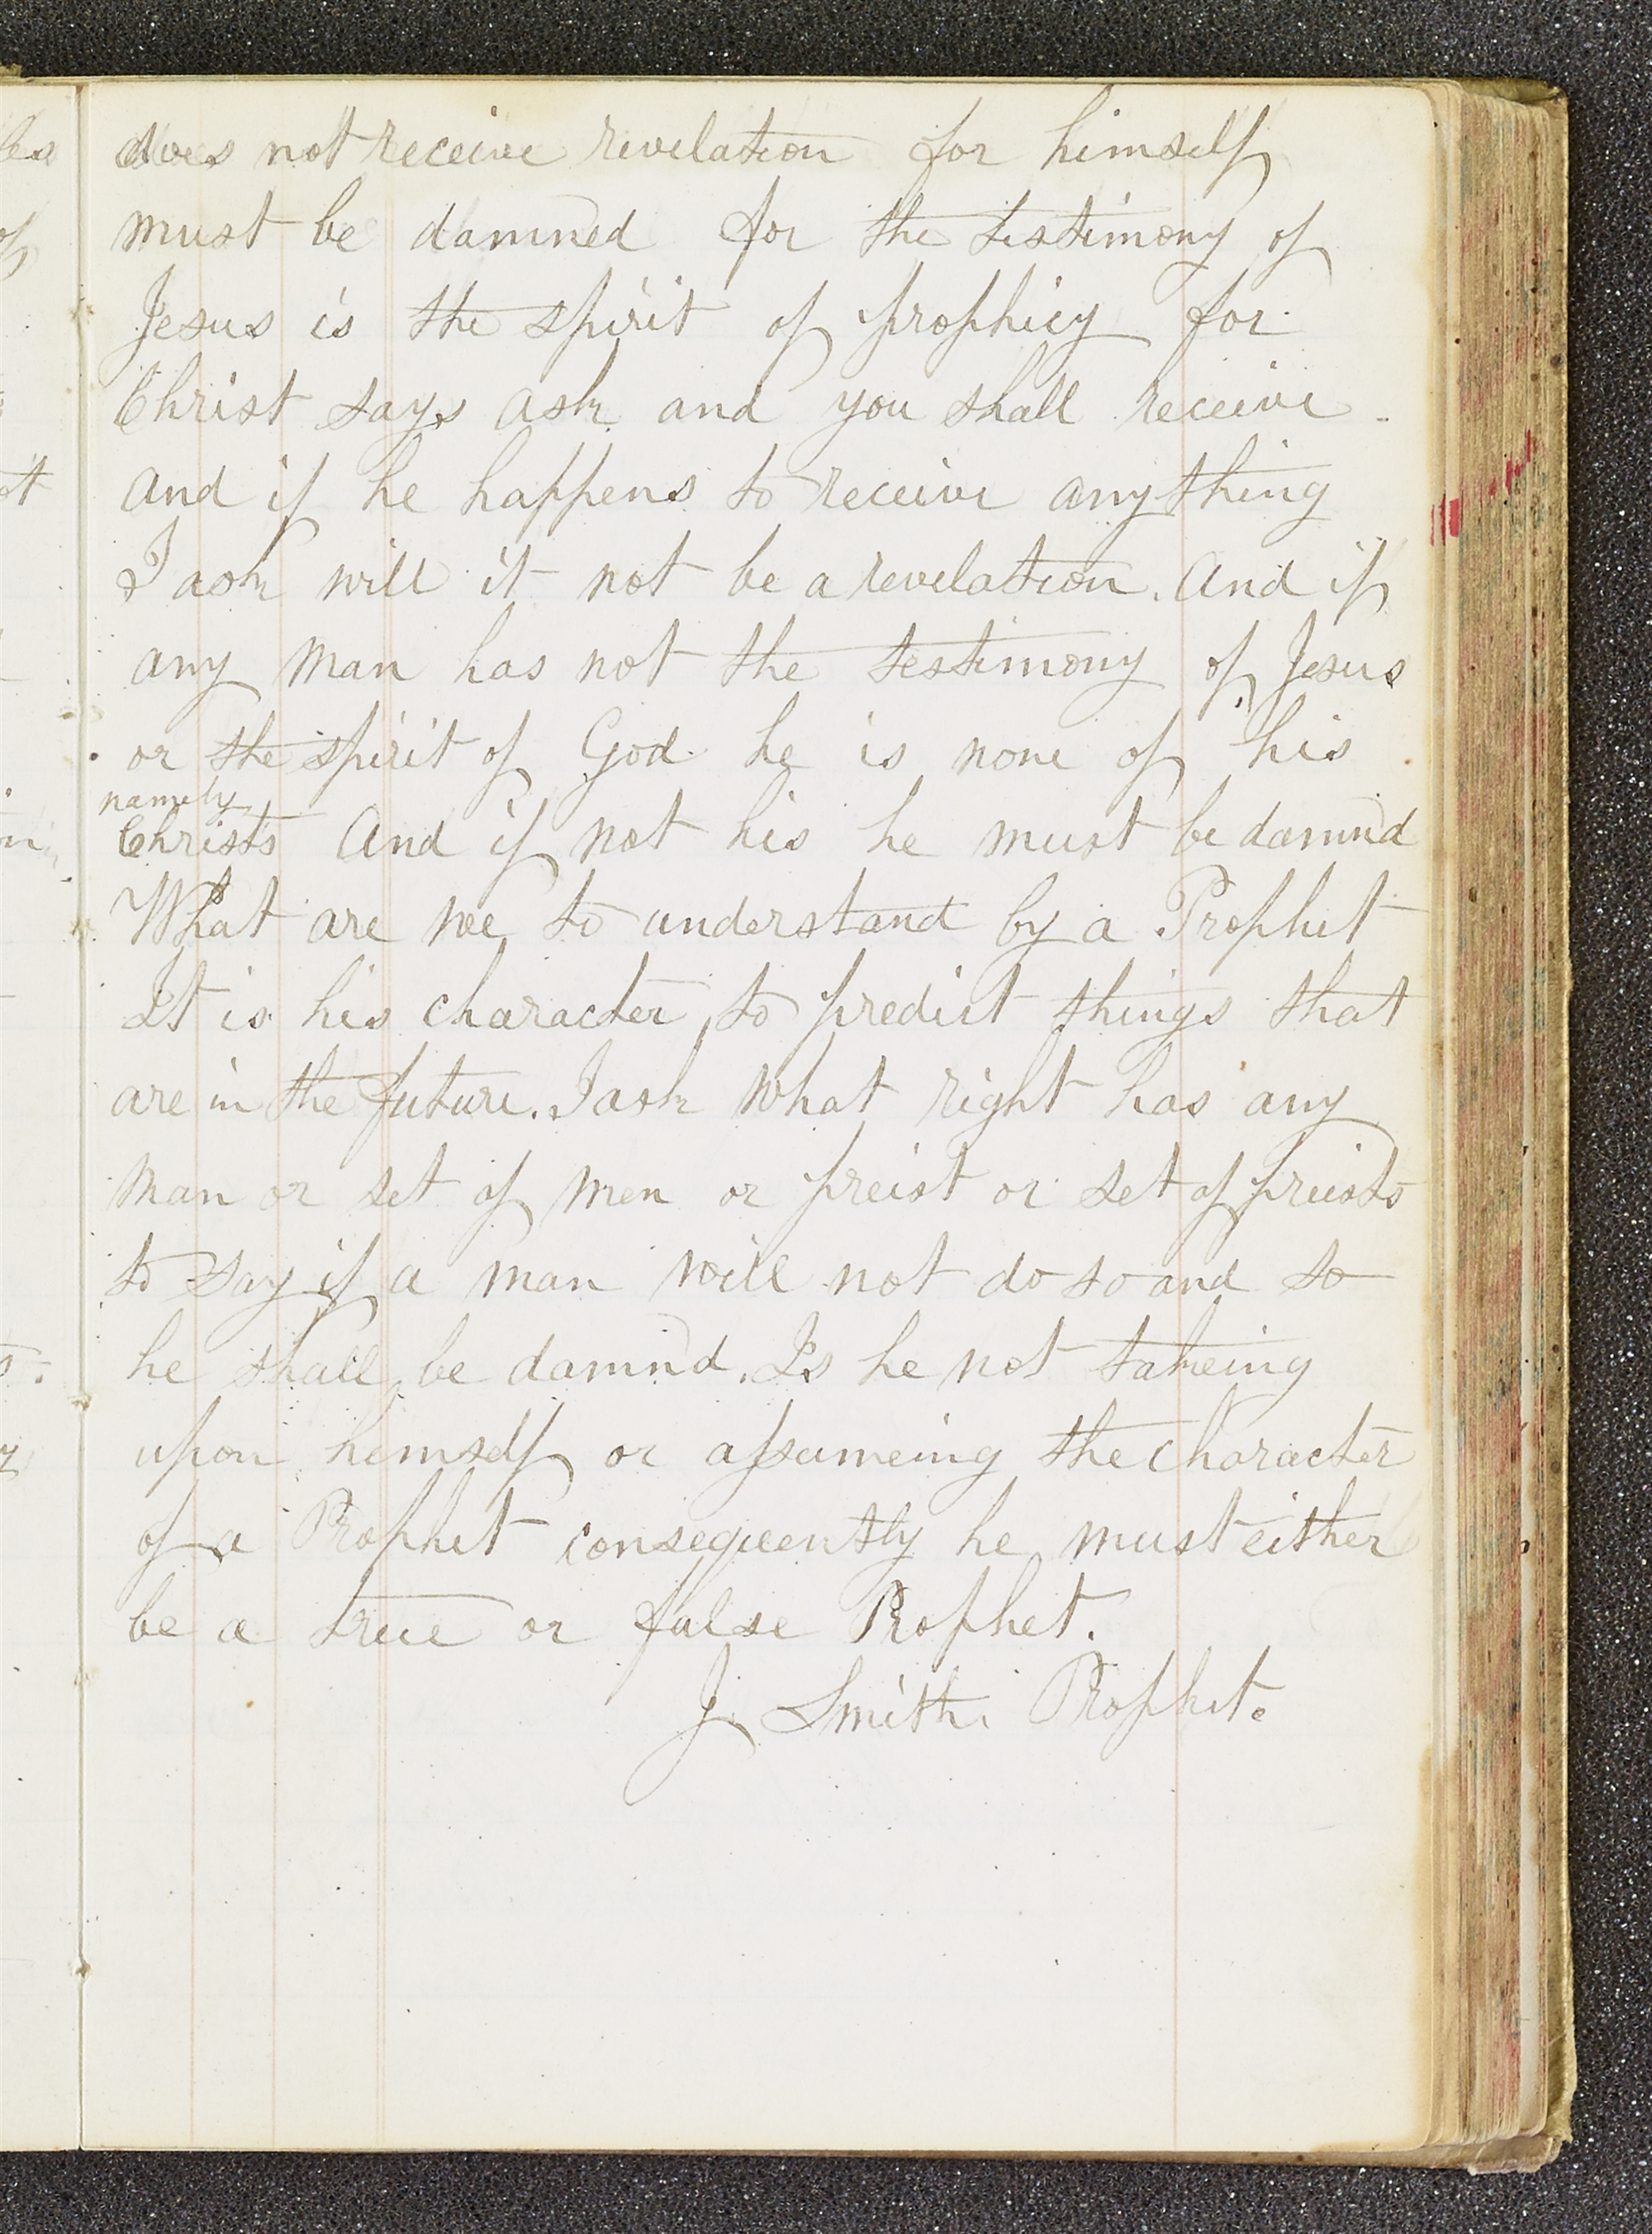 does not receive revelation for himself
must be damned for the testimony of
Jesus is the spirit of prophicy for
Christ says ask and you shall receive
and if he happens to receive anything
I ask will it not be a revelation. And if
any man has not the testimony of Jesus
or the spirit of God he is none of his
namely
Christs And if not his he must be damnd
What are we to understand by a Prophet
It is his character to predict things that
are in the future. I ask what right has any
man or set of men or preist or set of preists
to say if a man will not do so and so
he shall be damnd. Is he not takeing
upon himself or assumeing the character
of a Prophet consequently he must either
be a true or false Prophet.
J. Smith. Prophet.